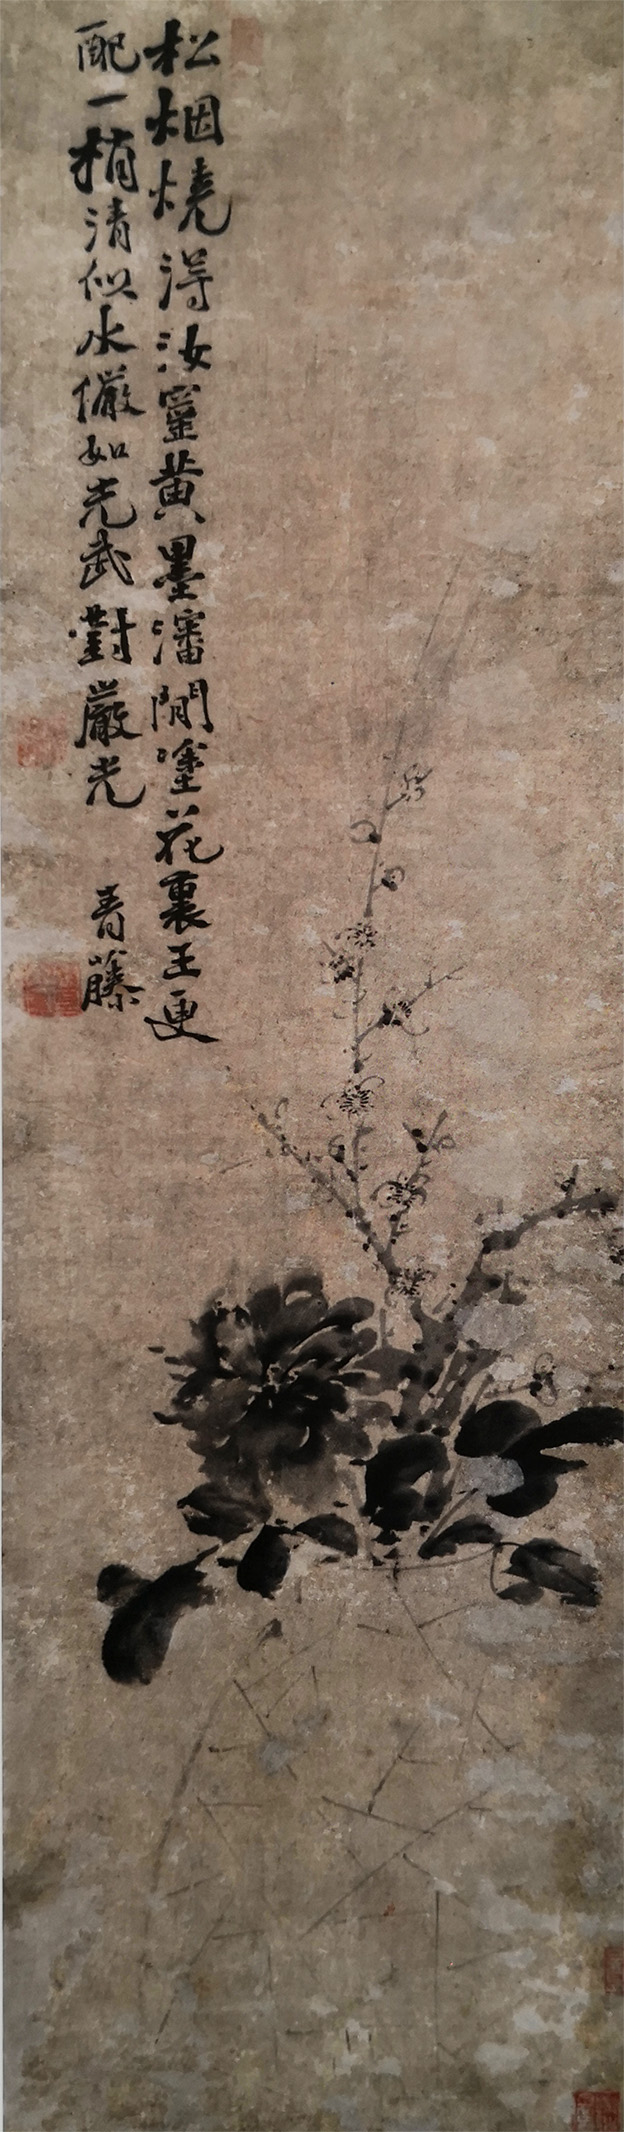 松烟燒得汝窰黄墨瀋閒塗花裏王更
配一梢清似水儼如光武對嚴光
青藤